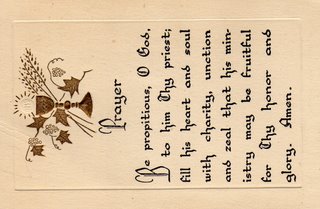 Prayer
Be propitious, O God,
to him Thy priest;
fill his heart and soul
with charity, unction
and zeal that his min-
istry may be fruitful
for Thy honor and
glory. Amen.